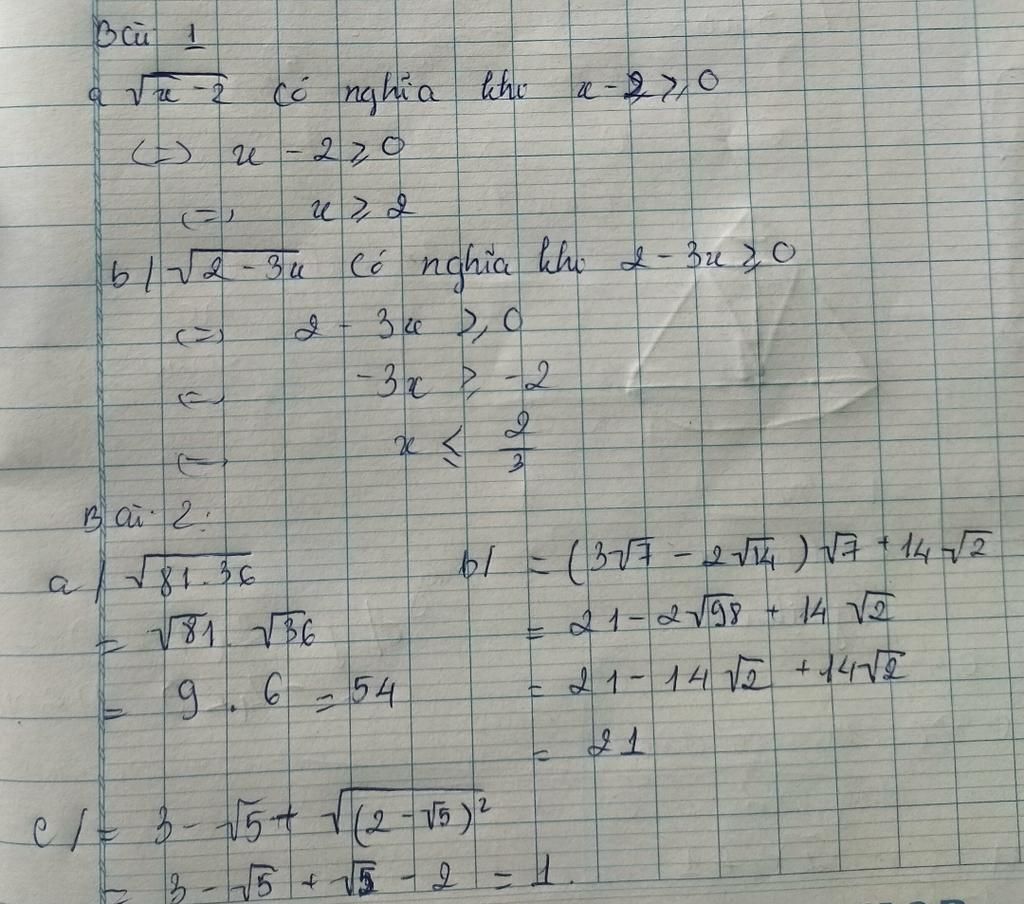 Bài 1
a √(x-2) có nghĩa khi x-2 ≥ 0
<=> x - 2 ≥ 0
<=> x ≥ 2
b/ √(2-3x) có nghĩa khi 2-3x ≥ 0
<=> 2 - 3x ≥ 0
<=> -3x ≥ -2
<=> x ≤ 2/3
Bài 2:
a/ √(81.36)
= √81 . √36
= 9 . 6 = 54
b/ = (3√7 - 2√14)√7 + 14√2
= 21 - 2√98 + 14√2
= 21 - 14√2 + 14√2
= 21
c/ = 3 - √5 + √((2-√5)²)
= 3 - √5 + √5 - 2 = 1.